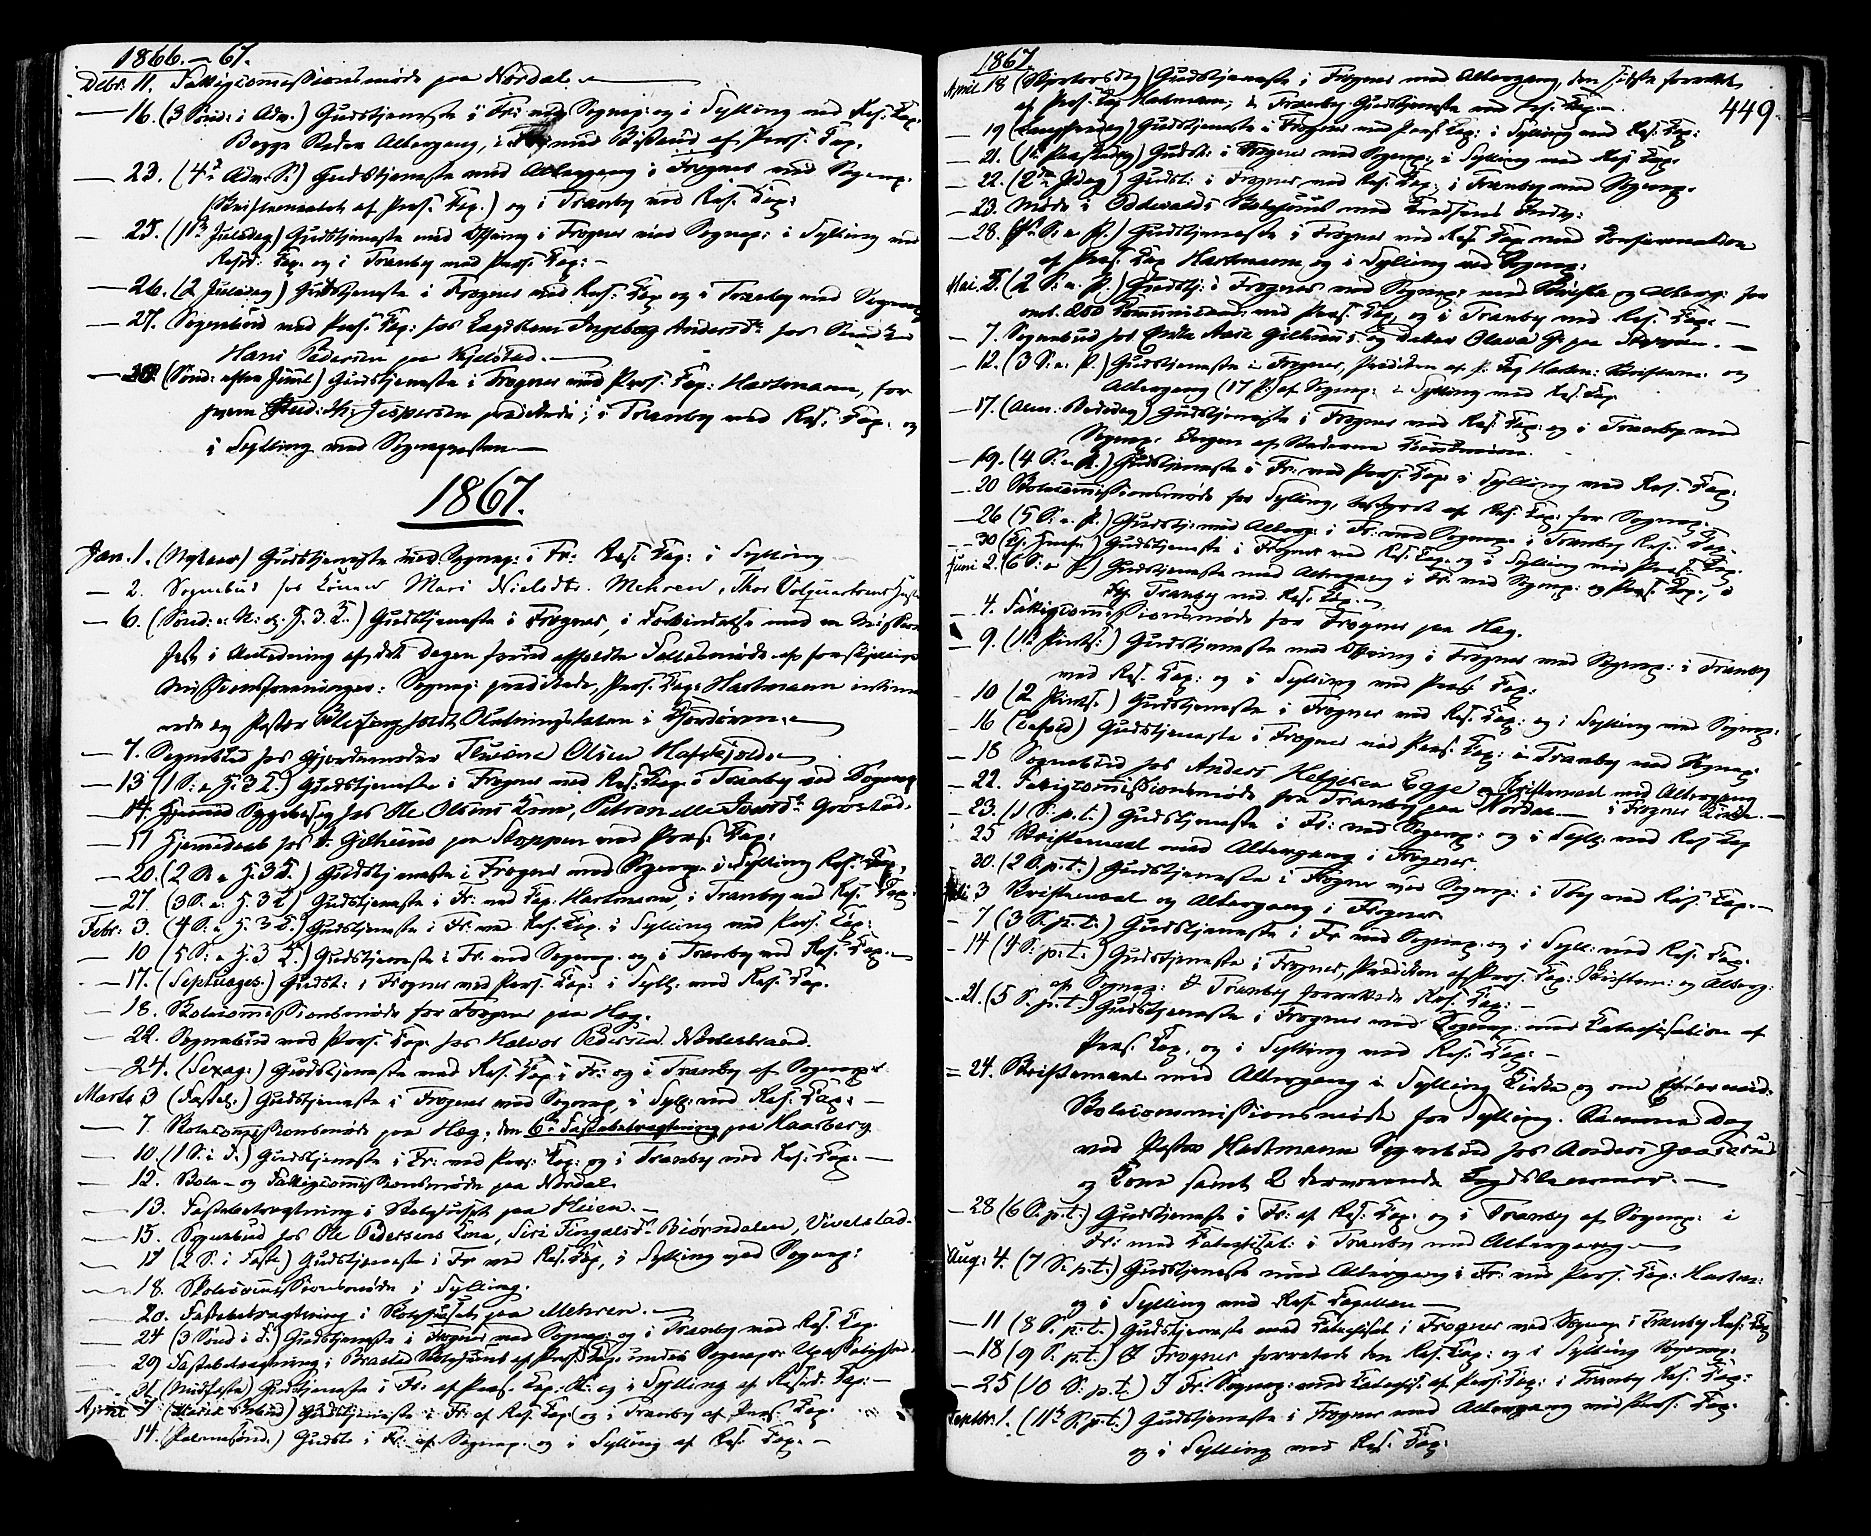 1866.-67.
Decbr. 11. Fattigcommissionsmøde paa Nordal.
— 16. (3 Sønd: i Adv.) Gudstjeneste i Fr: ved Sognep: og i Sylling ved Res: Cap:
Begge Steder Altergang, i Fr: med Bistand af Pers. Cap.
— 23. (4de Adv. S.) Gudstjeneste med Altergang i Frogner ved Sognep.
(Skriftemaalet af Pers. Cap.) og i Tranby ved Res. Cap:
— 25. (1ste Juledag) Gudstjeneste med Offring i Frogner ved Sognep: i Sylling ved
Resid: Cap. og i Tranby ved Pers. Cap: —
— 26. (2 Juledag) Gudstjeneste i Frogner ved Res: Cap og i Tranby ved Sognep
— 27. Sognebud ved Pers. Cap: hos Lægdslem Ingeborg Andersdr hos
Hans Pedersen paa Kjelstad.
— 30 (Sønd: efter Juul) Gudstjeneste i Frogner ved Pers. Cap: Hartmann, for
hvem Stud: th: Jespersen prædikede; i Tranby ved Res: Cap. og
i Sylling ved Sognepresten
1867.
Jan. 1. (Nytaar) Gudstjeneste ved Sognep: i Fr: Res. Cap: i Sylling
— 2. Sognebud hos Konen Mari Nielsdtr. Mehren, Thor
— 6. (Sønd: e: N: og H. 3. K.) Gudstjeneste i Frogner, i Forbindelse med en Missions
fest i Anledning af det Dagen forud afholdte Fællesmøde af forskjellige
Missionsforeninger: Sognep: prædikede, Pers. Cap: Hartmann
rede og Pastor holdt i Chordøren.
— 7. Sognebud hos Gjordemoder Olsen
— 13 (1 S: e. H. 3 K.) Gudstjeneste i Frogner ved Res: Cap. i Tranby ved Sognep
— 14. Sygebesøg hos Ole Olsens Kone, Petronelle Grøstad.
— 17 Hjemmedaab hos Gilhuus paa Stoppen ved Pers. Cap:
— 20. (2 S. e. H. 3 K.) Gudstjeneste i Frogner ved Sognep. i Sylling Res: Cap.
— 27. (3 S: e. H. 3 K) Gudstjeneste i Fr: ved Cap: Hartmann, i Tranby ved Res. Cap:
Febr: 3. (4 S: e. H. 3 K.) Gudstjeneste i Fr. ved Res. Cap. i Sylling ved Pers. Cap:
— 10 (5 S: e. H. 3 K.) Gudstjeneste i Fr. ved Sognep. og i Tranby ved Res. Cap.
— 17. (Septuages.) Gudst: i Frogner ved Pers. Cap: i Syll: ved Res. Cap.
— 18. Skolecommissionsmøde for Frogner paa Hæg.
— 22. Sognebud ved Pers. Cap. hos Halvor Pedersen
— 24. (Sexag:) Gudstjeneste ved Res. Cap i Fr: og i Tranby af Sognep
Marts 3 (Fastel:) Gudstjeneste i Frogner ved Sognep, i Syll: ved Res. Cap: —
— 7. Skolecommissionsmøde paa Hæg; den 6te Fastebetragtning paa Kaarberg
— 10. (1 S. i F.) Gudstjeneste i Fr: ved Pers: Cap: og i Tranby ved Res: Cap. —
— 12. Skole- og Fattigcommissionsmøde paa Nordal.
— 13. Fastebetragtning i Skolehuset paa Heien. —
— 15. Sognebud hos Ole Pedersens Kone, Siri Bjørndalen, Vivelstad.
— 17 (2 S. i Faste) Gudstjeneste i Fr ved Res. Cap, i Sylling ved Sognep:
— 18. Skolecommissionsmøde i Sylling.
— 20. Fastebetragtning i Skolehuset paa Mehren. —
— 24 (3 Sønd i F.) Gudstjeneste i Frogner ved Sognep: og i Tranby ved Res. Cap.
— 29 Fastebetragtning i Skolehuus af Pers. Cap. under Sognepr: Upasselighed.
— 31 (Midfaste) Gudstjeneste i Fr: af Pers. Cap. H: og i Sylling af Resid: Cap: —
April 7 (Mariæ Bebud) Gudstjeneste i Fr: af Res. Cap: og i Tranby af Pers. Cap.
— 14. (Palmesønd.) Gudstj i Fr. af Sognep. og i Sylling af Res. Cap: —
1867.
449.
April 18 (Skjertorsdag) Gudstjeneste i Frogner med Altergang, den sidste forrettet
af Pers. Cap Hartmann; i Tranby Gudstjeneste ved Res. Cap. —
— 19 (Langfredag) Gudstjeneste i Frogner ved Pers. Cap: i Sylling ved Res. Cap:
— 21. (1ste Paaskedag) Gudst: i Frogner ved Sognep., i Sylling ved Res. Cap.
— 22. (2den Pdag) Gudst: i Frogner ved Res. Cap., i Tranby ved Sognep.
— 23. Møde i Oddevalds Skolehuus med Kredsens
— 28. (1ste S: e. P.) Gudstjeneste i Frogner ved Res. Cap med Confirmation
af Pers. Cap Hartmann og i Sylling ved Sognep:
Mai. 5. (2 S: e. P.) Gudstj: i Frogner ved Sognep: med Skrifte og Alterg: for
omt. 200 Communicant., ved Pers. Cap, og i Tranby ved Res. Cap. —
— 7. Sognebud hos Enke Aase Gilhuus og Datter Olava G. paa Stoppen. —
— 12. (3 S: e. P.) Gudstjeneste i Frogner, Prædiken af P. Cap Hartm. Skriftem: og
Altergang (17 P.) af Sognep: i Sylling ved Res. Cap
— 17. (Alm. Bededag) Gudstjeneste i Frogner ved Res. Cap: og i Tranby ved
Sognep. Ingen af Stederne
— 19. (4 S: e. P.) Gudstjeneste i Fr: ved Pers. Cap i Sylling ved Res. Cap:
— 20 Skolecommissionsmøde for Sylling, bestyret af Res. Cap. for Sognep:
— 26 (5 S: e. P.) Gudstj. med Alterg: i Fr: ved Sognep. i Tranby Res: Cap.
— 30 Gudstjeneste i Frogner ved Res. Cap. og i Sylling ved Pers. Cap.
Juni 2. (6 S: e. P.) Gudstjeneste med Altergang i Fr. ved Sognep: og Pers. Cap., i
Tranby ved Res. Cap. —
— 4. Fattigcommissionsmøde for Frogner paa Hæg.
— 9. (1ste Pintsd:) Gudstjeneste med Offring i Frogner ved Sognep: i Tranby
ved Res. Cap: og i Sylling ved Pers. Cap:
— 10 (2 Pintsd.) Gudstjeneste i Frogner ved Res. Cap: og i Sylling ved Sognep:
— 16 (Trefold) Gudstjeneste i Frogner ved Pers. Cap: i Tranby ved Sognep
— 18 Sognebud hos Anders Egge og Skriftemaal med Altergang
— 22. Fattigcommissionsmøde for Tranby paa Nordal — i Frogner Kirke. —
— 23. (1 S: p. t.) Gudstjeneste i Fr: ved Sognep: og i Syll: ved Res Cap
— 25 Skriftemaal med Altergang i Frogner
— 30. (2 S. p. t.) Gudstjeneste i Frogner ved Sognep: i Tby ved Res. Cap. —
Juli 3 Skriftemaal og Altergang i Frogner
— 7 (3 S. p. t.) Gudstjeneste i Fr ved Sognep. og i Syll: ved Res. Cap.
— 14 (4 S. p. t.) Gudstjeneste i Frogner, Prædiken af Pers. Cap: Skriftem: og Alterg:
af Sognep: I Tranby forrettede Res. Cap: —
— 21. (5 S. p. t.) Gudstjeneste i Frogner ved Sognep: med Catechisation af
Pers. Cap, og i Sylling ved Res. Cap: —
— 24. Skriftemaal med Altergang i Sylling Kirke og om Efterm:
Skolecommissionsmøde for Sylling. Samme Dag
ved Pastor Hartmann Sognebud hos Anders
og Kone samt 2 derværende Lægdslemmer. —
— 28 (6 S. p. t.) Gudstjeneste i Fr: af Res. Cap. og i Tranby af Sognep: i
Fr: med Catechisat: i Tranby med Altergang —
Aug: 4. (7 S. p. t.) Gudstjeneste med Altergang i Fr: ved Pers. Cap: Hartm:
og i Sylling ved Res. Capellan —
— 11 (8 S. p. t.) Gudstjeneste med Catechisat. i Frogner ved Sognep. i Tranby Res: Cap
— 18 (9 S. p. t.) I Frogner forrettede den Res. Cap: og i Sylling Sognep:
— 25 (10 S: p. t.) I Fr: Sognep: med Catechis. af Pers. Cap: i Tranby Res. Cap:
Septbr: 1. (11te S. p. t.) Gudstjeneste i Frogner med Altergang ved Pers. Cap.
og i Sylling ved Res. Cap: